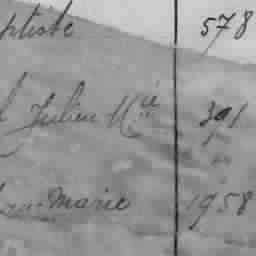 ptiste 578
Julien M^ie 391
Marie 1958